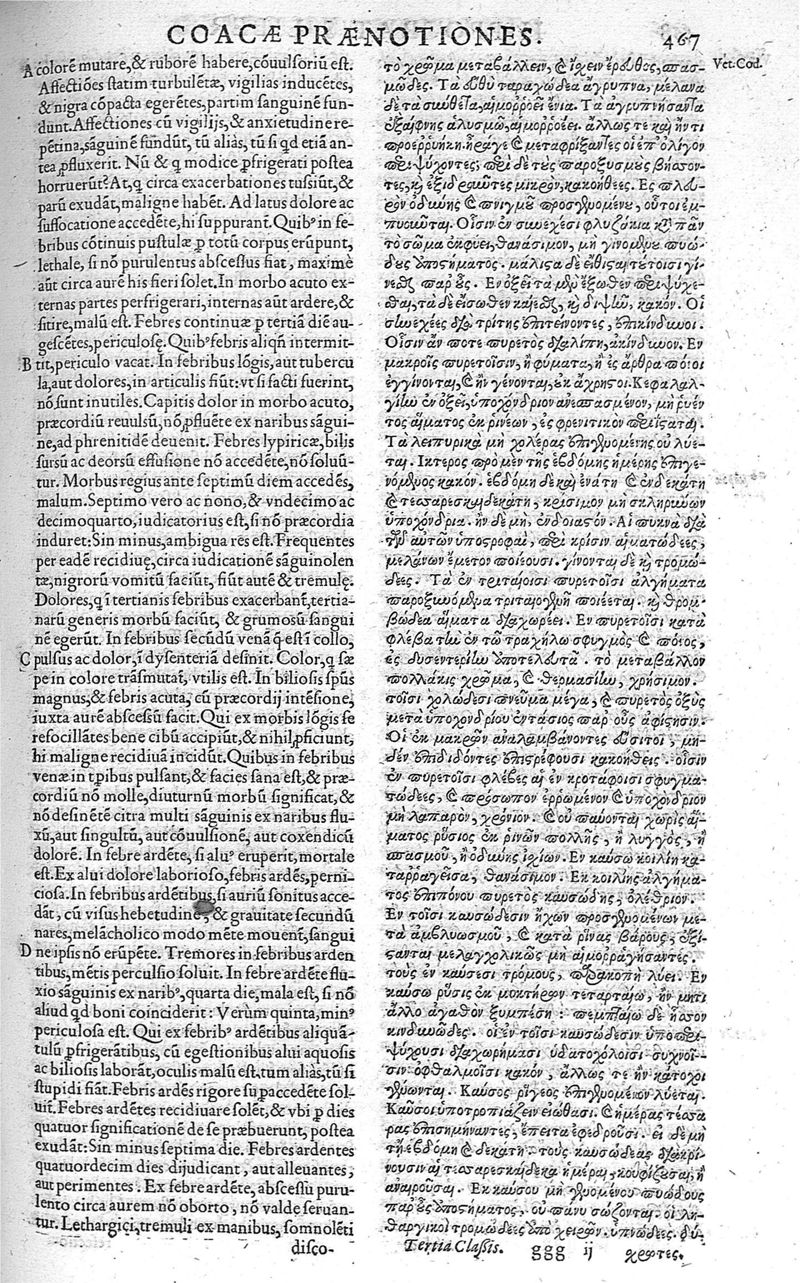 COACÆ PRÆNOTIONES.
467
A colorē mutare, & ruborē habere, cōuulsoriū est.
Affectiōes statim turbulētæ, vigilias inducētes,
& nigra cōpacta egerētes, partim sanguinē fun-
dunt. Affectiones cū vigilijs, & anxietudine re-
pētina, sāguinē fundūt, tū aliàs, tū si qd etiā an-
tea ꝑfluxerit. Nū & q modice ꝑfrigerati postea
horruerūt? At, q circa exacerbationes tussiūt, &
parū exudāt, maligne habēt. Ad latus dolore ac
suffocatione accedēte, hi suppurant. Quibꝰ in fe-
bribus cōtinuis pustulæ ꝑ totū corpus erūpunt,
lethale, si nō purulentus abscessus fiat, maximè
aūt circa aurē his fieri solet. In morbo acuto ex-
ternas partes perfrigerari, internas aūt ardere, &
sitire, malū est. Febres continuæ ꝑ tertiā diē au-
gescētes, periculosę. Quibꝰ febris aliqñ intermit-
B tit, periculo vacat. In febribus lōgis, aut tubercu
la, aut dolores, in articulis fiūt: vt si facti fuerint,
nō sunt inutiles. Capitis dolor in morbo acuto,
præcordiū reuulsū, nō ꝑfluēte ex naribus sāgui-
ne, ad phrenitidē deuenit. Febres lypiricæ, bilis
sursū ac deorsū effusione nō accedēte, nō soluū-
tur. Morbus regius ante septimū diem accedēs,
malum. Septimo vero ac nono, & vndecimo ac
decimoquarto, iudicatorius est, si nō præcordia
induret: Sin minus, ambigua res est. Frequentes
per eadē recidiuę, circa iudicationē sāguinolen
tæ, nigrorū vomitū faciūt, fiūt autē & tremulę.
Dolores, q ī tertianis febribus exacerbant, tertia-
narū generis morbū faciūt, & grumosū sangui
nē egerūt. In febribus secūdū venā q est ī collo,
C pulsus ac dolor, ī dysenteriā desinit. Color, q sæ
pe in colore trāsmutat, vtilis est. In biliosis spūs
magnus, & febris acuta, cū præcordij intēsione,
iuxta aurē abscessū facit. Qui ex morbis lōgis se
refocillātes bene cibū accipiūt, & nihil ꝓficiunt,
hi maligne recidiuā incidūt. Quibus in febribus
venæ in tꝑibus pulsant, & facies sana est, & præ-
cordiū nō molle, diuturnū morbū significat, &
nō desinētē citra multi sāguinis ex naribus flu-
xū, aut singultū, aut cōuulsionē, aut coxendicū
dolorē. In febre ardēte, si aluꝰ eruperit, mortale
est. Ex alui dolore laborioso, febris ardēs, perni-
ciosa. In febribus ardētibus, si auriū sonitus acce-
dāt, cū visus hebetudine, & grauitate secundū
nares, melācholico modo mēte mouent, sangui
D ne ipsis nō erūpēte. Tremores in febribus arden
tibus, mētis perculsio soluit. In febre ardēte flu-
xio sāguinis ex naribꝰ, quarta die, mala est, si nō
aliud qd boni coinciderit: Verùm quinta, minꝰ
periculosa est. Qui ex febribꝰ ardētibus aliquā-
tulū ꝑfrigerātibus, cū egestionibus alui aquosis
ac biliosis laborāt, oculis malū est, tum aliàs, tū si
stupidi fiāt. Febris ardēs rigore suꝑaccedēte sol-
uit. Febres ardētes recidiuare solēt, & vbi ꝑ dies
quatuor significationē de se præbuerunt, postea
exudāt: Sin minus septima die. Febres ardentes
quatuordecim dies dijudicant, aut alleuantes,
aut perimentes. Ex febre ardēte, abscessū puru-
lento circa aurem nō oborto, nō valdę seruan-
tur. Lethargici, tremuli ex manibus, somnolēti
disco-
τὸ χρῶμα μεταβάλλειν, καὶ ἴχειν ἔρευθος, σπασ- Vet. Cod.
μῶδες. Τὰ εὐθὺ ταραχώδεα ἄγρυπνα, μέλανα
δὲ τὰ συνθετα, αἱμορροεῖ ἔνια. Τὰ ἀγρυπνήσαντα
ἐξαίφνης ἀλυσμῷ, αἱμορροεῖ. ἄλλως τε καὶ ἤν τι
προερρυήκῃ. ἦράγε καὶ μεταφρίξαντες οἱ ἐπ' ὀλίγον
περιψύχοντες, περὶ δὲ τοὺς παροξυσμοὺς βήσσον-
τες, καὶ ἐξιδροῦντες μικρὸν, κακοήθεες. Ες πλευ-
ρὸν ὀδύνης καὶ πνιγμοῦ προσγενομένου, οὗτοι ἐμ-
πυοῦνται. Οἷσιν ἐν συνεχέσι φλυζάκια κατὰ πᾶν
τὸ σῶμα ἐκφύει, θανάσιμον, μὴ γινομένου πυώ-
δους ὑποστήματος. μάλιστα δὲ εἴθισται τούτοισι γί-
νεσθαι παρ' οὖς. Εν ὀξεῖ τὰ μὲν ἔξωθεν περιψύχε-
σθαι, τὰ δὲ εἴσωθεν καίεσθαι, καὶ διψῆν, κακόν. Οἱ
συνεχέες διὰ τρίτης ἐπιτείνοντες, ἐπικίνδυνοι.
Οἷσιν ἂν ποτε πυρετὸς διαλίπῃ, ἀκίνδυνον. Εν
μακροῖς πυρετοῖσιν, ἢ φύματα, ἢ ἐς ἄρθρα πόνοι
ἐγγίνονται, καὶ ἢν γένονται, οὐκ ἄχρηστοι. Κεφαλαλ-
γίη ἐν ὀξεῖ, ὑποχόνδριον ἀνεσπασμένον, μὴ ῥυέν
τος αἵματος ἐκ ρινέων, ἐς φρενιτικὸν περιίσταται.
Τὰ λειπυρικὰ μὴ χολέρας ἐπιγενομένης οὐ λύε-
ται. Ικτερος πρὸ μὲν τῆς ἑβδόμης ἡμέρης ἐπιγε-
νόμενος κακόν. ἑβδόμῃ δὲ καὶ ἐνάτῃ καὶ ἑνδεκάτῃ
καὶ τεσσαρεσκαιδεκάτῃ, κρίσιμον μὴ σκληρύνων
ὑποχόνδρια. ἢν δὲ μὴ, ἐνδοιαστόν. Αἱ πυκναὶ διὰ
τῶν αὐτῶν ὑποστροφαὶ, περὶ κρίσιν αἱματώδεες,
μελάνων ἔμετον ποιέουσι. γίνονται δὲ καὶ τρομώ-
δεες. Τὰ ἐν τριταίοισι πυρετοῖσι ἀλγήματα
παροξυνόμενα τριταιογενῆ ποιέεται. καὶ θρομ-
βώδεα αἵματα διαχωρέει. Εν πυρετοῖσι κατὰ
φλέβα τὴν ἐν τῷ τραχήλῳ σφυγμὸς καὶ πόνος,
ἐς δυσεντερίην ὑποτελευτᾷ. τὸ μεταβάλλον
πολλάκις χρῶμα, καὶ θερμασίην, χρήσιμον.
τοῖσι χολώδεσι πνεῦμα μέγα, καὶ πυρετὸς ὀξὺς
μετὰ ὑποχονδρίου ἐντάσιος παρ' οὖς ἀφίστησιν.
Οἱ ἐκ μακρῶν ἀναλαμβάνοντες εὔσιτοι, μη-
δὲν ἐπιδιδόντες ὑποστρέφουσι κακοήθεις. οἷσιν
ἐν πυρετοῖσι φλέβες αἱ ἐν κροτάφοισι σφυγμα-
τώδεες, καὶ πρόσωπον ἐρρωμένον καὶ ὑποχόνδριον
μὴ λαπαρὸν, χρόνιον. καὶ οὐ παύονται χωρὶς αἵ-
ματος ῥύσιος ἐκ ρινῶν πολλῆς, ἢ λυγγὸς, ἢ
σπασμοῦ, ἢ ὀδύνης ἰσχίων. Εν καύσῳ κοιλίη κα-
ταρραγεῖσα, θανάσιμον. Εκ κοιλίης ἀλγήμα-
τος ἐπιπόνου πυρετὸς καυσώδης, ὀλέθριον.
Εν τοῖσι καυσώδεσιν ἤχων προσγενομένων με-
τὰ ἀμβλυωσμοῦ, καὶ κατὰ ρῖνας βάρους, ἐξί-
στανται μελαγχολικῶς μὴ αἱμορραγήσαντες.
τοὺς ἐν καύσεσι τρόμους, παρακοπὴ λύει. Εν
καύσῳ ῥύσις ἐκ μυκτήρων τεταρταίῳ, ἢν μή τι
ἄλλο ἀγαθὸν ξυμπέσῃ: πεμπταίῳ δὲ ἧσσον
κινδυνῶδες. οἱ ἐν τοῖσι καυσώδεσιν ὑποπερι-
ψύχουσι διαχωρήμασι ὑδατοχόλοισι συχνοῖ-
σιν ὀφθαλμοῖσι κακὸν, ἄλλως τε ἢν κάτοχοι
γένωνται. Καῦσος ῥίγεος ἐπιγενομένου λύεται.
Καῦσοι ὑποτροπιάζειν εἰώθασι. καὶ ἡμέρας τέσσα
ρας ἐπισημήναντες, ἔπειτα ἐφιδροῦσι. εἰ δὲ μὴ
τῇ ἑβδόμῃ καὶ δεκάτῃ. τοὺς καυσώδεας διακρί-
νουσιν αἱ τεσσαρεσκαίδεκα ἡμέραι, κουφίζουσαι, ἢ
ἀναιροῦσαι. Εκ καύσου μὴ γενομένου πυώδους
παρ' οὖς ὑποστήματος, οὐ πάνυ σώζονται. οἱ λη-
θαργικοὶ τρομώδεες ἀπὸ χειρῶν. ὑπνώδεες. δύ-
Tertia Classis. ggg ij χρωτες.